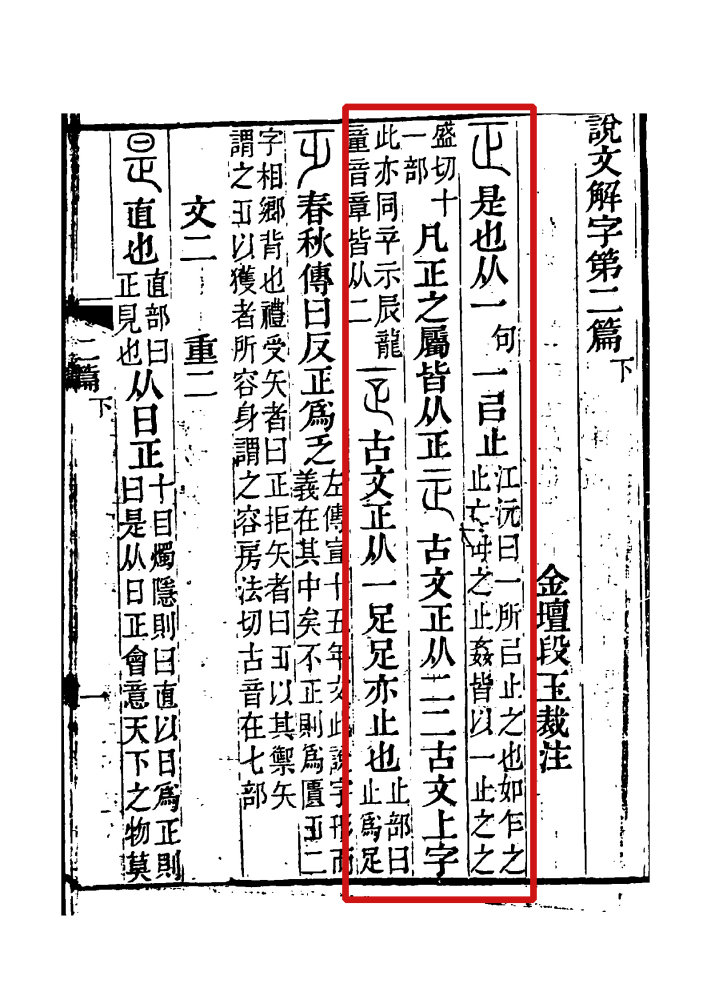 說文解字第二篇下
金壇段玉裁注
正 是也从一句一㠯止江沅曰一所㠯止之也如乍之止亡毌之止姦皆以一止之之
盛切十一部凡正之屬皆从正 古文正从二二古文上字
此亦同辛示辰龍童音章皆从二 古文正从一足足亦止也止部曰止爲足
春秋傳曰反正爲乏左傳宣十五年文此說字形而義在其中矣不正則爲匱乏二
字相鄉背也禮受矢者曰正拒矢者曰乏以其禦矢謂之乏以獲者所容身謂之容房法切古音在七部
文二 重二
是 直也直部曰正見也从日正十目燭隱則曰直以日爲正則曰是从日正會意天下之物莫
二篇下
一